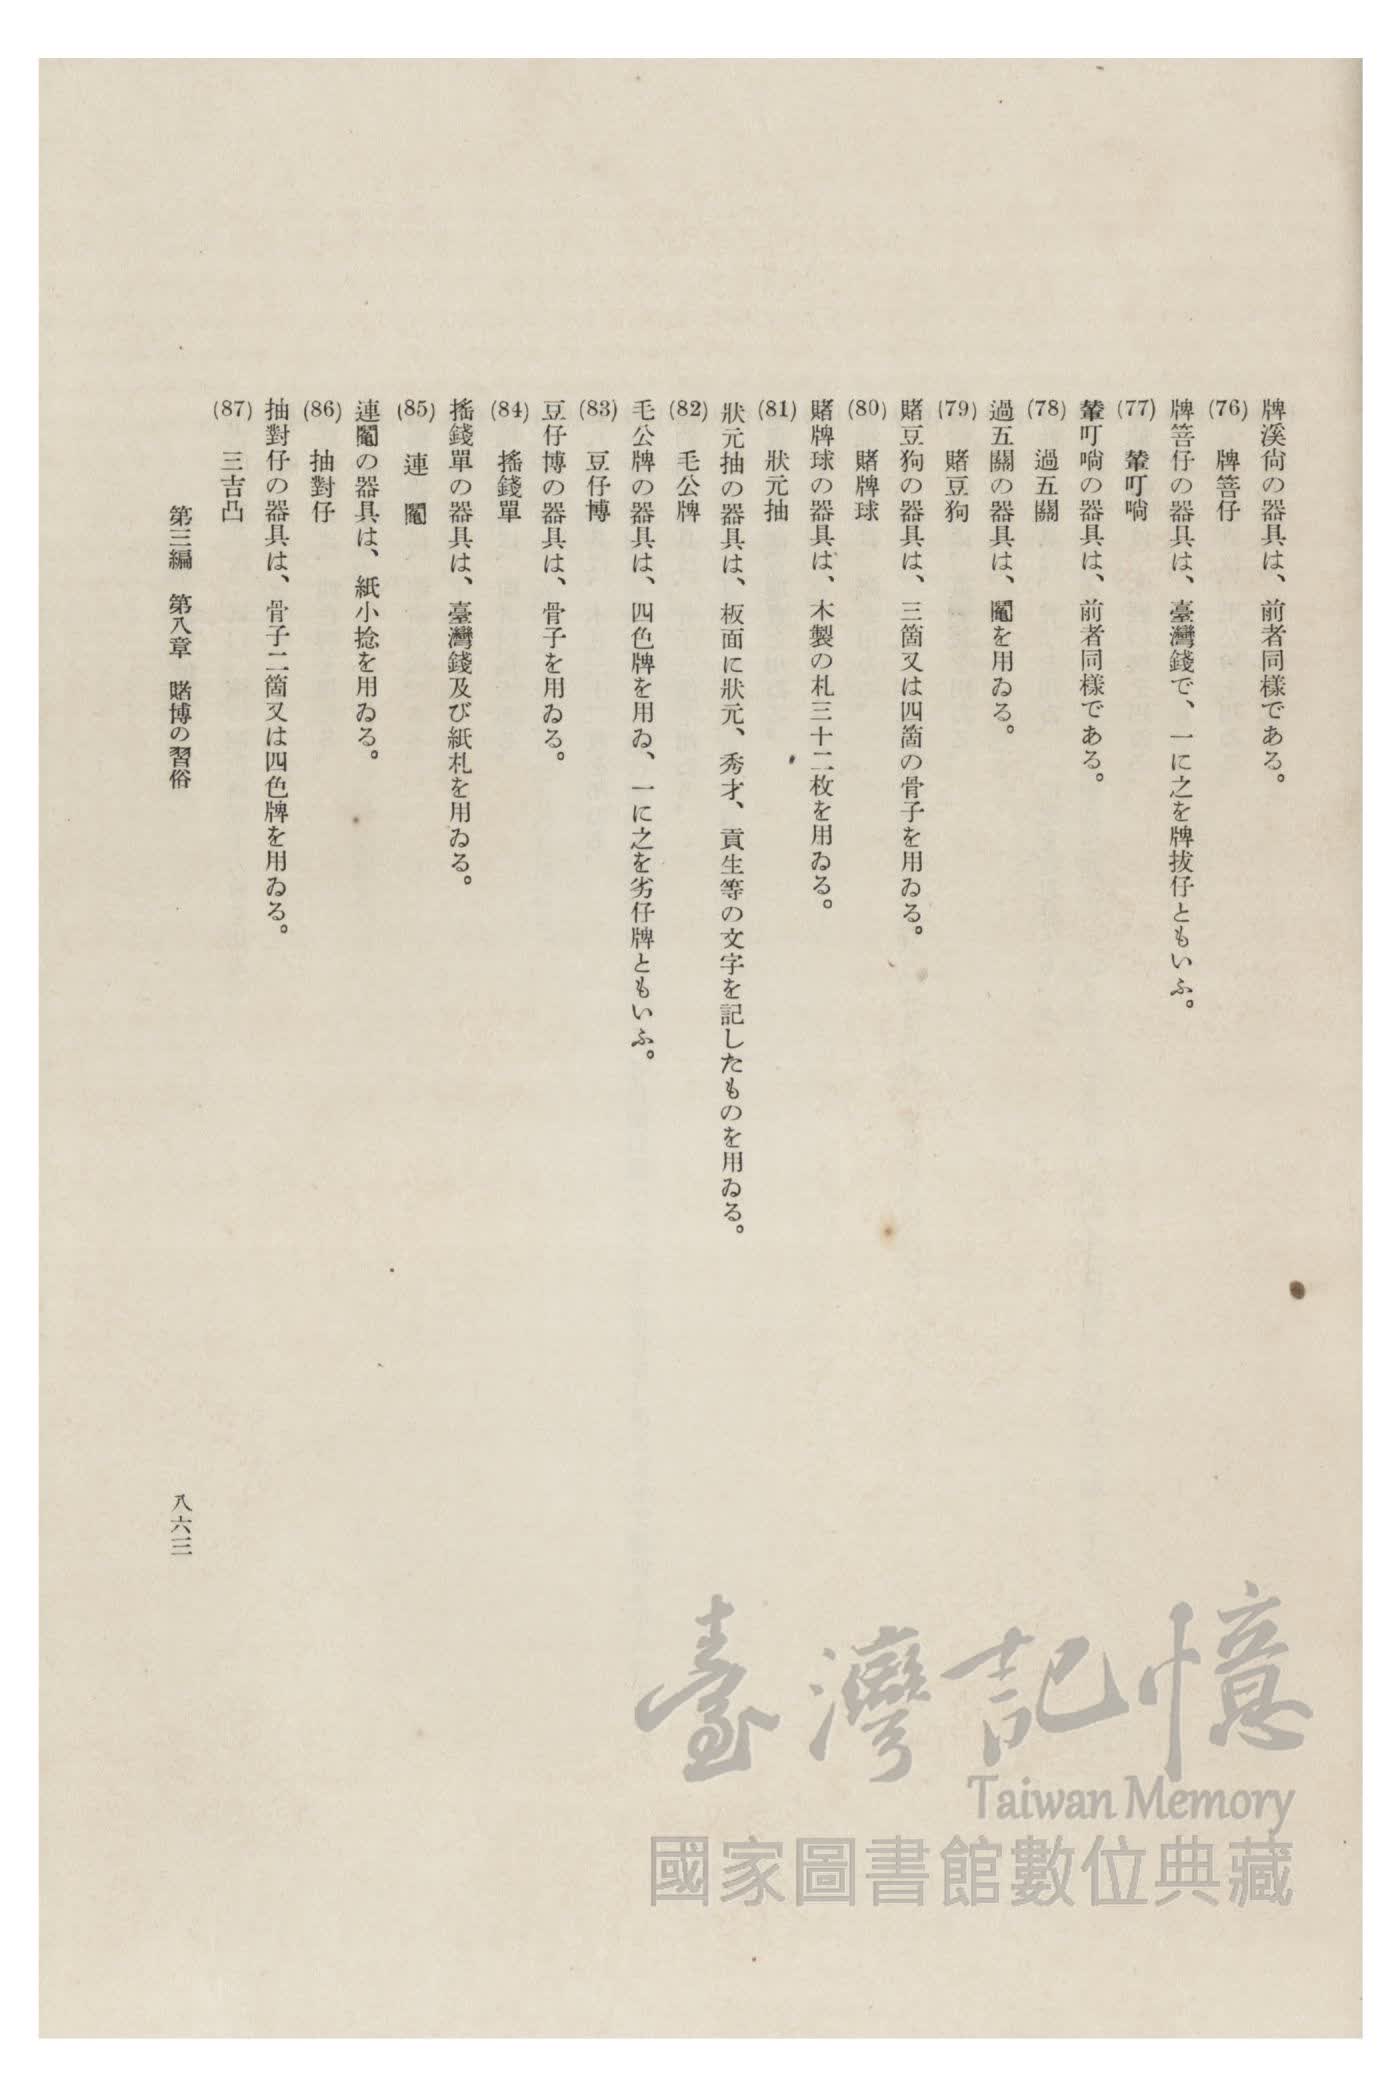 牌溪尙の器具は、前者同樣である。
(76) 牌箁仔
牌箁仔の器具は、臺灣錢で、一に之を牌拔仔ともいふ。
(77) 輦叮噹
輦叮噹の器具は、前者同樣である。
(78) 過五關
過五關の器具は、鬮を用ゐる。
(79) 賭豆狗
賭豆狗の器具は、三箇又は四箇の骨子を用ゐる。
(80) 賭牌球
賭牌球の器具は、木製の札三十二枚を用ゐる。
(81) 狀元抽
狀元抽の器具は、板面に狀元、秀才、貢生等の文字を記したものを用ゐる。
(82) 毛公牌
毛公牌の器具は、四色牌を用ゐ、一に之を劣仔牌ともいふ。
(83) 豆仔博
豆仔博の器具は、骨子を用ゐる。
(84) 搖錢單
搖錢單の器具は、臺灣錢及び紙札を用ゐる。
(85) 連鬮
連鬮の器具は、紙小捻を用ゐる。
(86) 抽對仔
抽對仔の器具は、骨子二箇又は四色牌を用ゐる。
(87) 三吉凸
第三編 第八章 賭博の習俗
八六三
臺灣記憶
Taiwan Memory
國家圖書館數位典藏